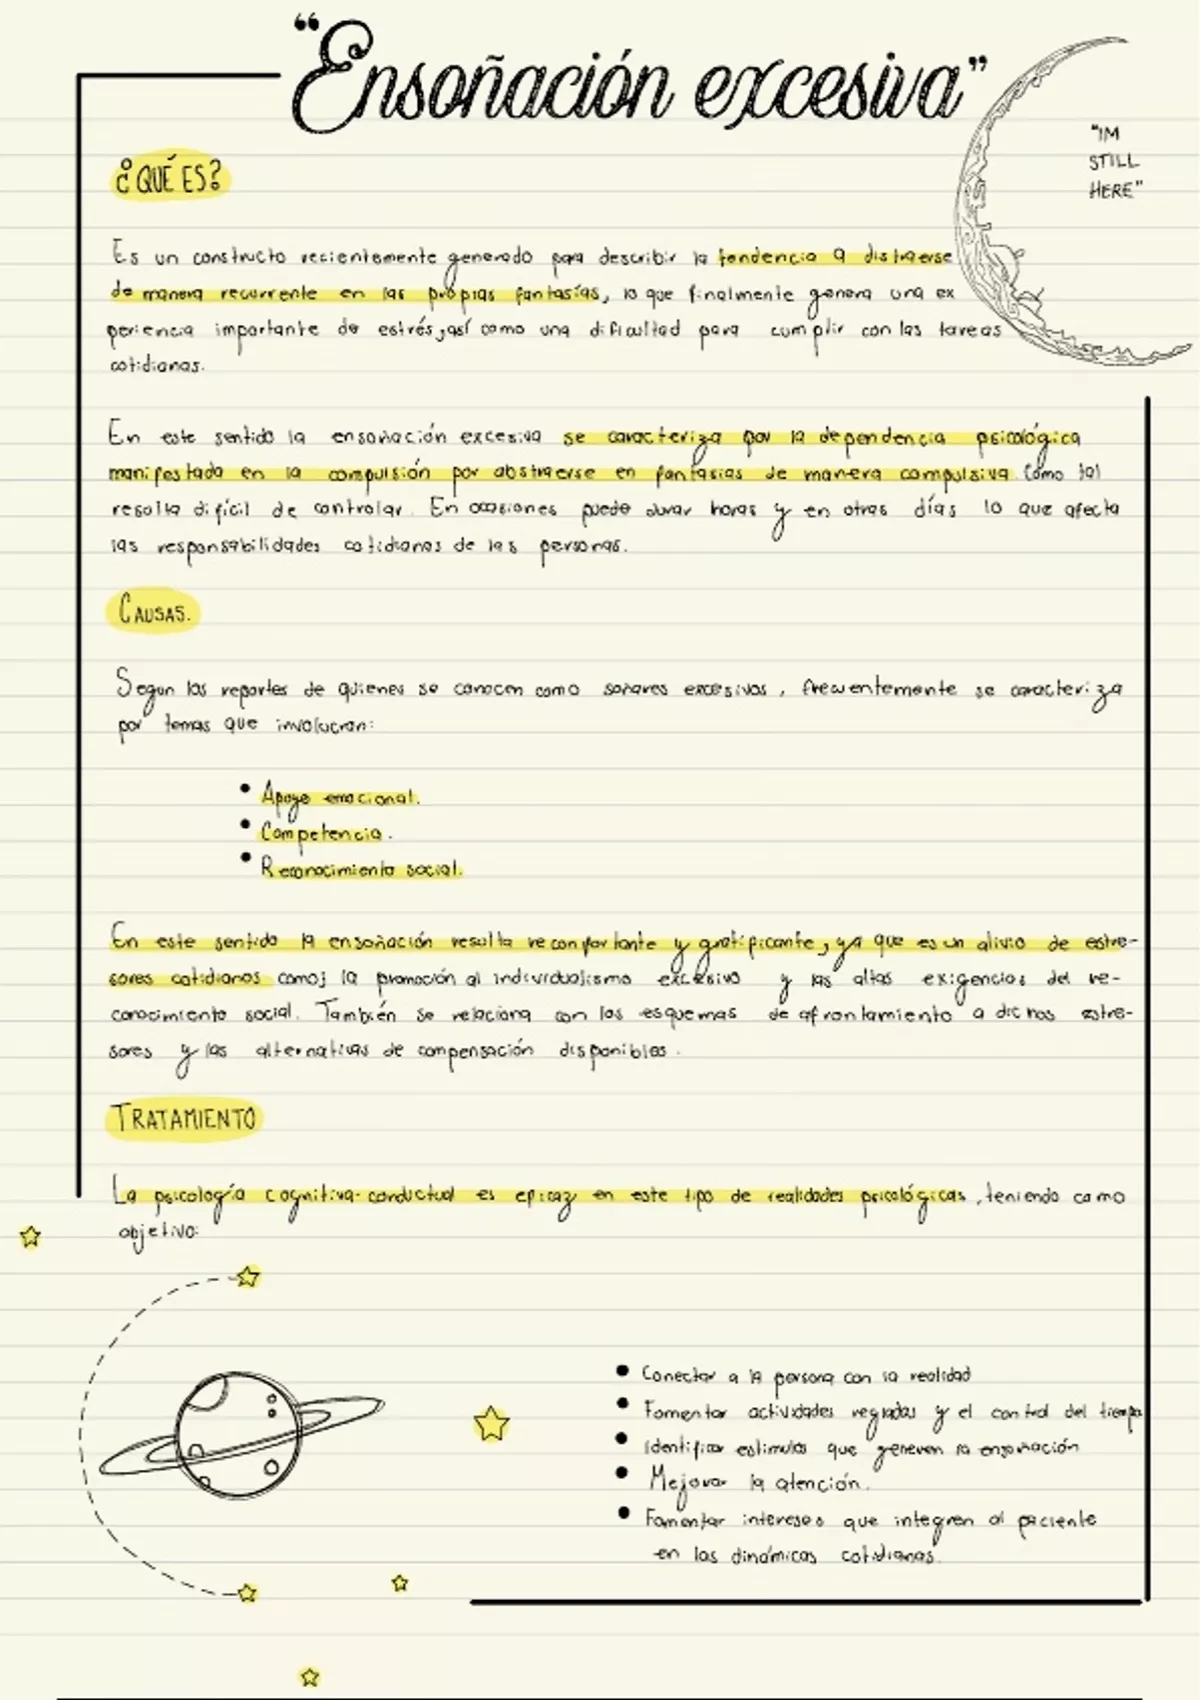 "Ensoñación excesiva"
"IM
STILL
HERE"
¿QUÉ ES?
Es un constructo recientemente generado para describir la tendencia a distraerse
de manera recurrente en las propias fantasías, lo que finalmente genera una ex
periencia importante de estrés, así como una dificultad para cumplir con las tareas
cotidianas.
En este sentido la ensoñación excesiva se caracteriza por la dependencia psicológica
manifestada en la compulsión por abstraerse en fantasias de manera compulsiva. Como tal
resulta difícil de controlar. En ocasiones puede durar horas y en otras días lo que afecta
las responsabilidades cotidianas de las personas.
CAUSAS.
Segun los reportes de quienes se conocen como soñares excesivos, frecuentemente se caracteriza
por temas que involucran:
• Apoyo emocional.
• Competencia.
• Reconocimiento social.
En este sentido la ensoñación resulta reconfortante y gratificante, ya que es un alivio de estre-
sores cotidianos como; la promoción al individualismo excesivo y las altas exigencias del re-
conocimiento social. También se relaciona con los esquemas de afrontamiento a dichos estre-
sores y las alternativas de compensación disponibles.
TRATAMIENTO
La psicología cognitiva-conductual es eficaz en este tipo de realidades psicológicas, teniendo como
objetivo:
• Conectar a la persona con la realidad
• Fomentar actividades regladas y el control del tiempo
• Identificar estimulos que generen la ensoñación
• Mejorar la atención.
• Fomentar intereses que integren al paciente
en las dinámicas cotidianas.